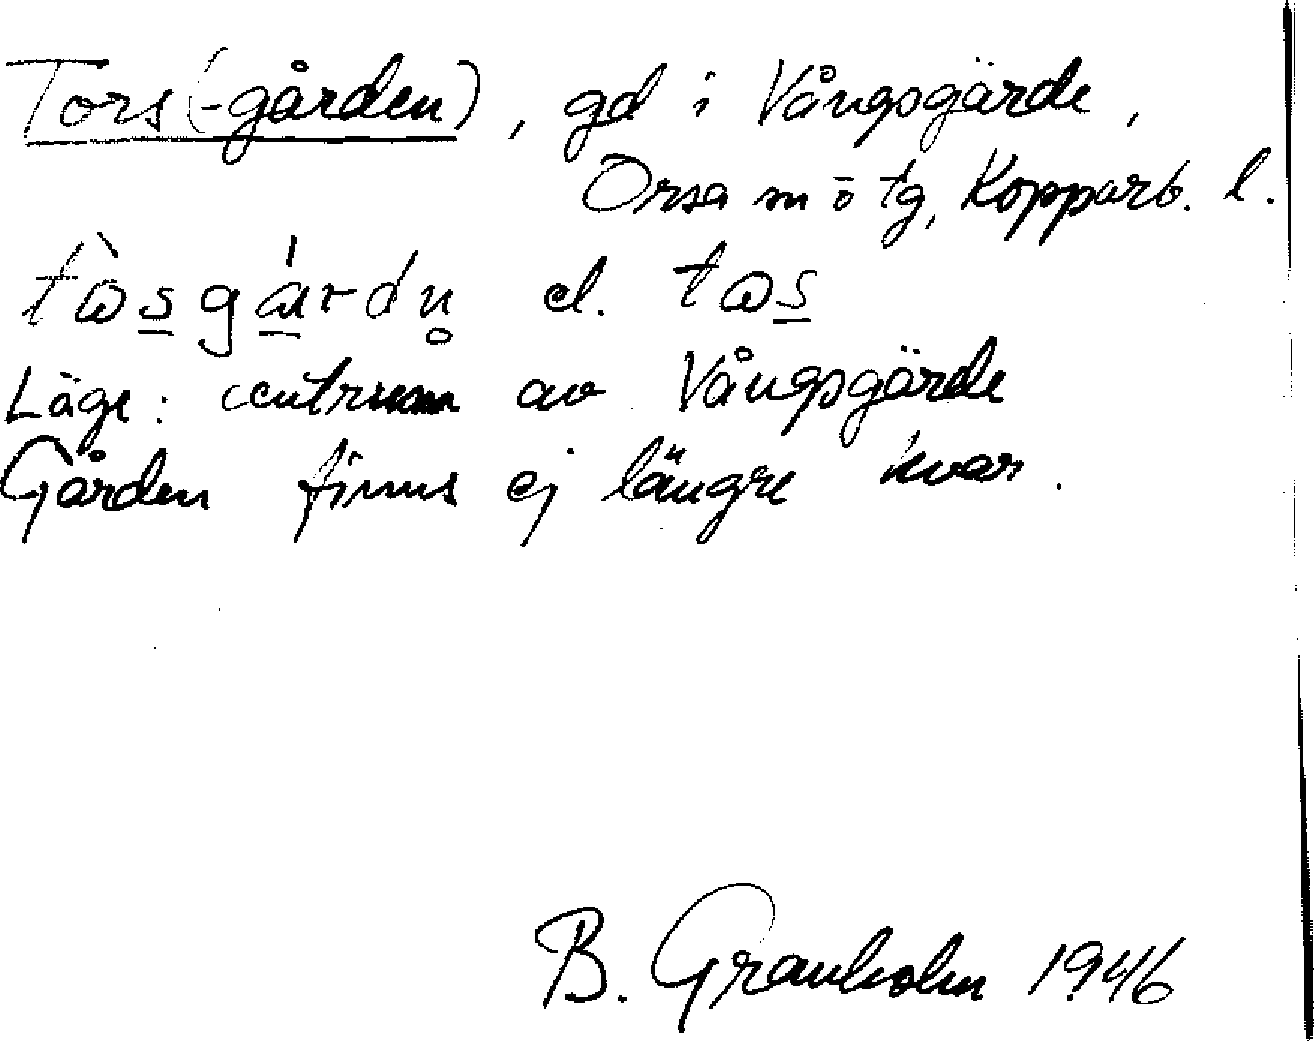 Tors(-gården), gd i Vångsgärde,
Orsa sn o tg, Kopparb. l.
el.
Läge: centrum av Vångsgärde
Gården finns ej längre kvar.
B. Granholm 1946